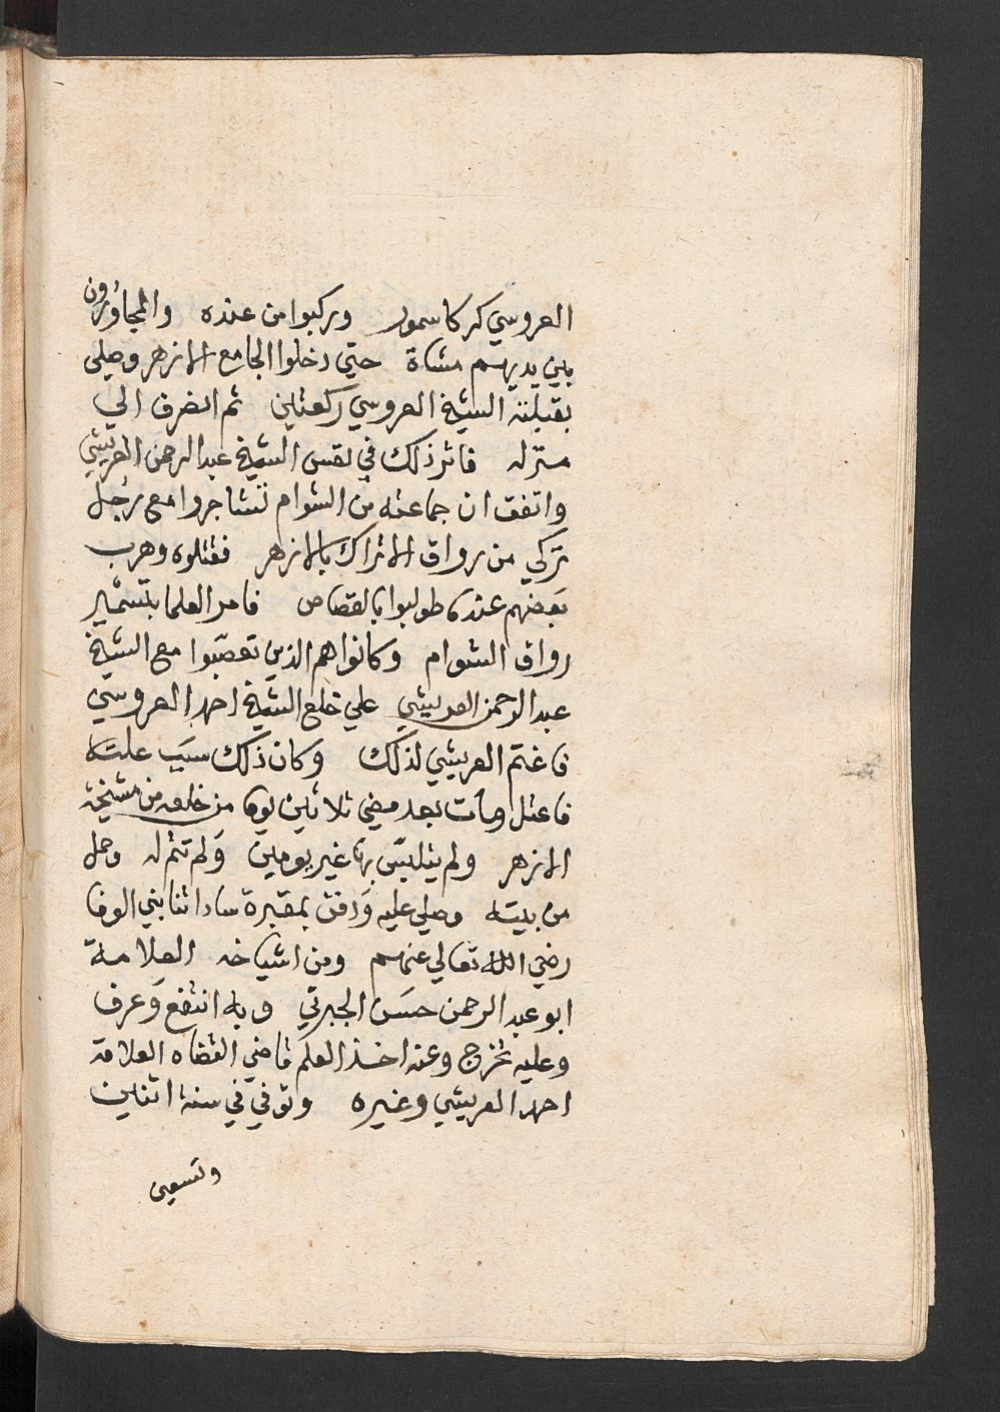 العروسي كركا سمور وركبوا من عنده والمجاورون
بين يديهم مشاة حتي دخلوا الجامع الازهر وصلي
بقبلته الشيخ العروسي ركعتين ثم انصرف الي
منزله فاثر ذلك في نفس الشيخ عبد الرحمن العريشي
واتفق ان جماعته من الشوام تشاجروا مع رجل
تركي من رواق الاتراك بالازهر فقتلوه وهرب
بعضهم عندما طولبوا بالقصاص فامر العلما بتسمير
رواق الشوام وكانوا هم الذين تعصبوا مع الشيخ
عبد الرحمن العريشي علي خلع الشيخ احمد العروسي
فاغتم العريشي لذلك وكان ذلك سبب علته
فاعتل ومات بعد مضي ثلاثين يوما من خلعه من مشيخة
الازهر ولم يتلبس بها غير يومين ولم تتم له وحمل
من بيته وصلي عليه ودفن بمقبرة ساداتنا بني الوفا
رضي الله تعالي عنهم ومن اشياخه العلامة
ابو عبد الرحمن حسن الجبرتي وبه انتفع وعرف
وعليه تخرج وعنه اخذ العلم قاضي القضاه العلامة
احمد العريشي وغيره وتوفي في سنة اثنين
وتسعين